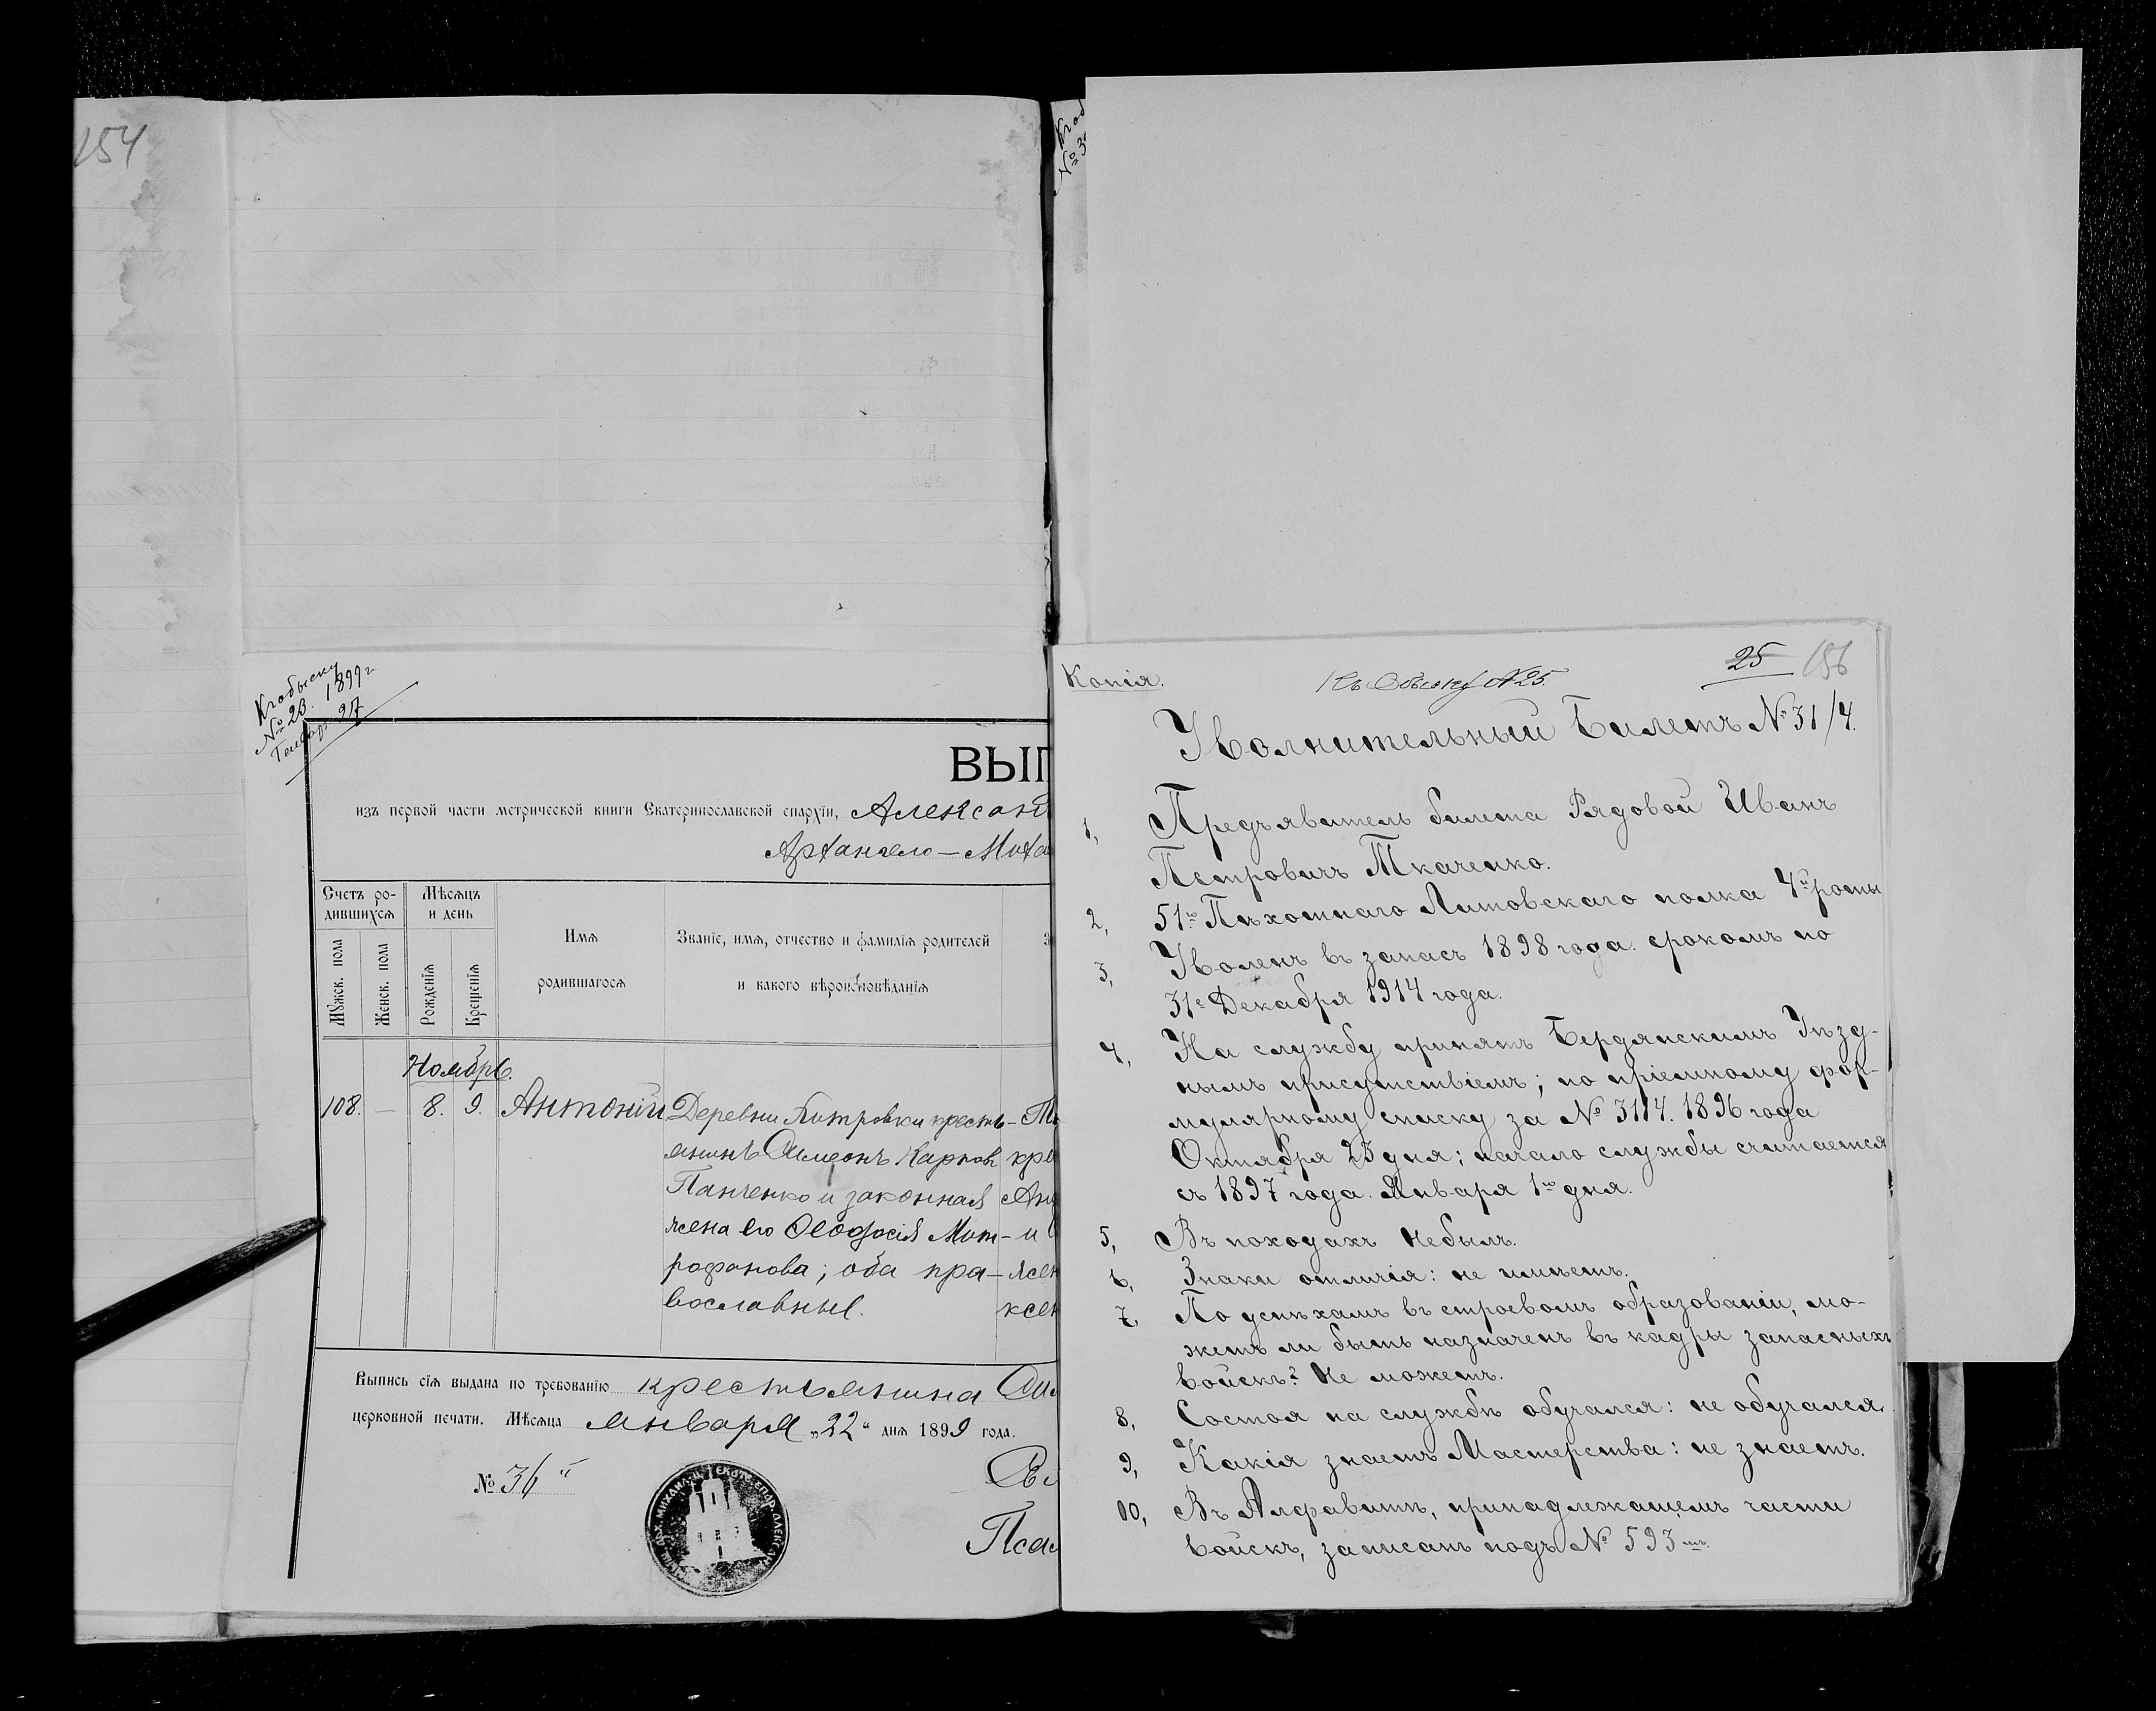 154
Къ обыску
№ 23. 1899 г.
Генвар. 27
ВЫП
изъ первой части метрической книги Екатеринославской епархіи, Алексан
Архангело-Миха
Счетъ ро-
дившихся
Мѣсяцъ
и день
Мужск. пола
Женск. пола
Рожденія
Крещенія
Имя
родившагося
Званіе, имя, отчество и фамилія родителей
и какого вѣроисповѣданія
Ноябрь.
108. — 8. 9. Антоній
Деревни Петровки кресть-
янинъ Симеонъ Карпов
Панченко и законная
жена его Феодосія Мит-
рофанова; оба пра-
вославные.
кре
и
жен
ксен
Выпись сія выдана по требованію крестьянина Сим
церковной печати. Мѣсяца января „22“ дня 1899 года.
№ 36й
Свя
Псал
№ 3
Копія.
Къ Обыску №25.
25 156
Увольнительный Билетъ № 31/4.
1, Предъявитель билета Рядовой Иванъ
Петровичъ Ткаченко.
2, 51го Пѣхотнаго Литовскаго полка 4й роты
3, Уволенъ въ запасъ 1898 года. срокомъ по
31е Декабря 1914 года.
4, На службу принятъ Бердянскимъ Уѣзд-
нымъ присутствіемъ; по пріемному фор-
мулярному списку за № 3114. 1896 года
Октября 23 дня; начало службы считается
съ 1897 года. Января 1го дня.
5, Въ походахъ небылъ.
6, Знаки отличія: не имѣетъ.
7, По успѣхамъ въ строевомъ образованіи, мо-
жетъ ли быть назначенъ въ кадры запасныхъ
войскъ? Не можетъ.
8, Состоя на службѣ обучался: не обучался.
9, Какія знаетъ Мастерства: не знаетъ.
10, Въ Алфавитѣ, принадлежащемъ части
войскъ, записанъ подъ № 593мъ.